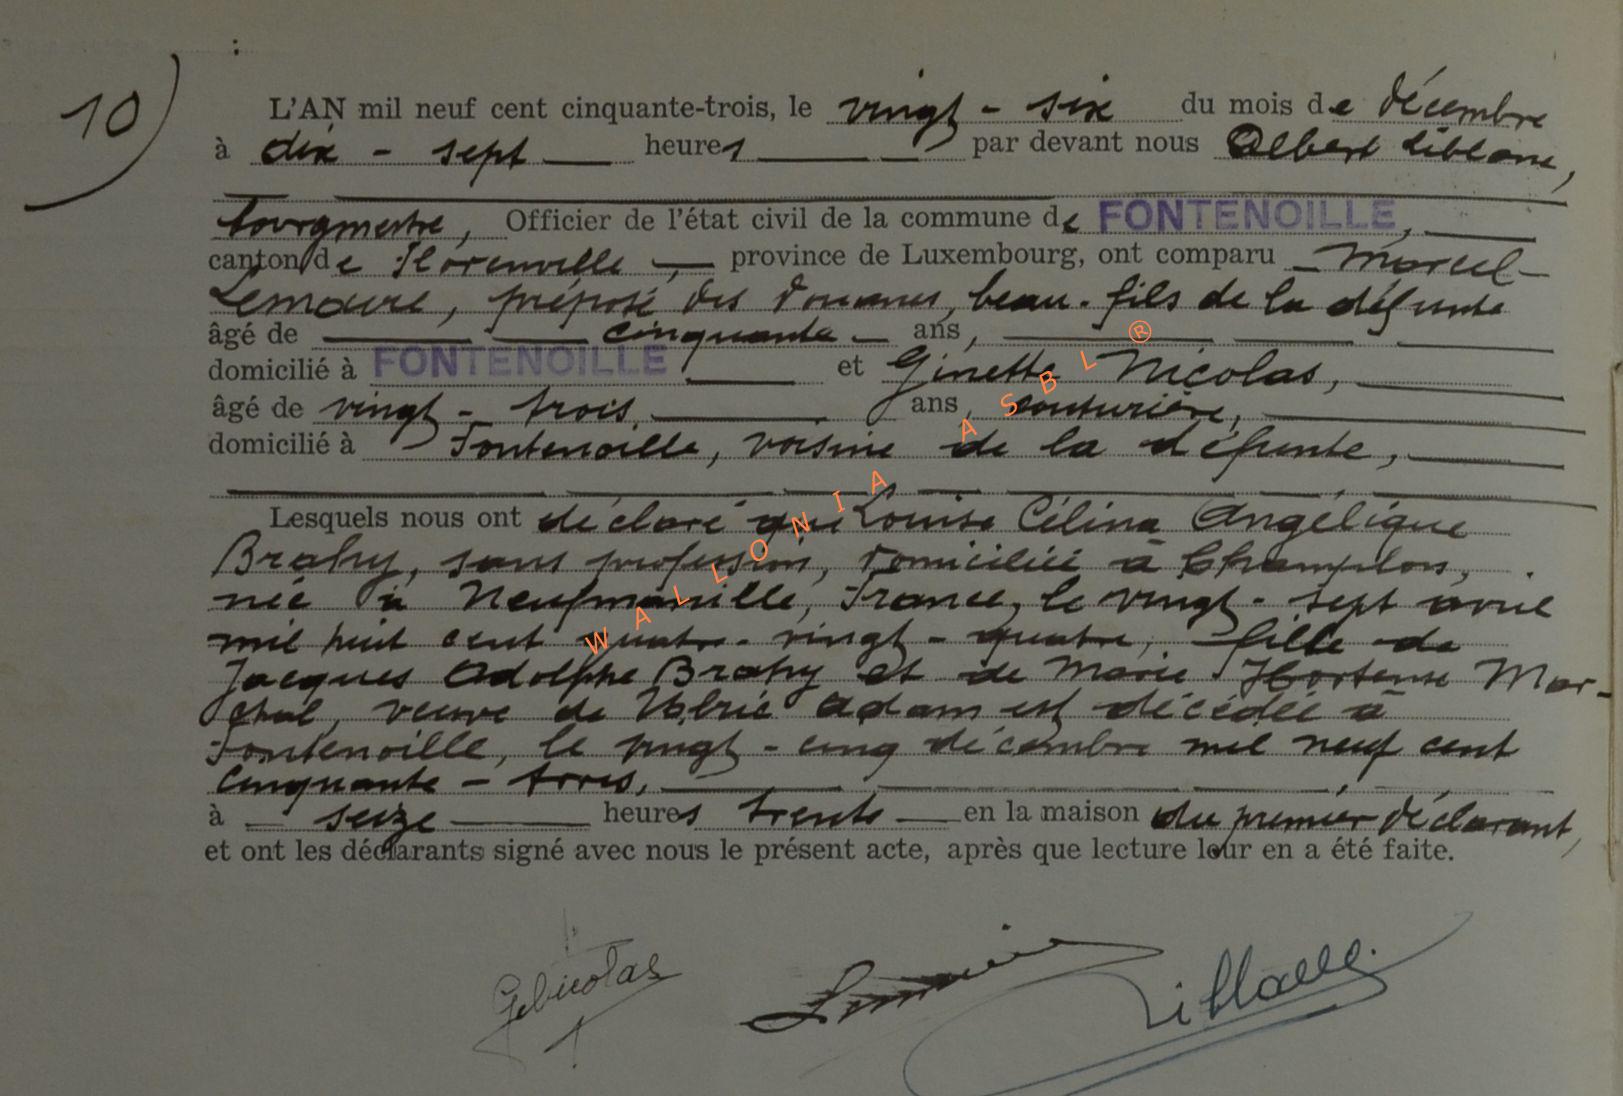 10)
L'AN mil neuf cent cinquante-trois, le vingt-six du mois de décembre
à dix-sept heures par devant nous Albert
bourgmestre, Officier de l'état civil de la commune de FONTENOILLE,
canton de Florenville, province de Luxembourg, ont comparu Marcel
Lemaire, préposé des douanes, beau-fils de la défunte
âgé de cinquante ans,
domicilié à FONTENOILLE et Ginette Nicolas,
âgé de vingt-trois ans, couturière,
domicilié à Fontenoille, voisine de la défunte,
Lesquels nous ont déclaré que Louise Célina Angélique
Brahy, sans profession, domiciliée à Champlon,
née à Neufmanille, France, le vingt-sept avril
mil huit cent quatre-vingt-quatre, fille de
Jacques Adolphe Brahy et de Marie Hortense Mar-
chal, veuve de Adam est décédée à
Fontenoille, le vingt-cinq décembre mil neuf cent
cinquante-trois,
à seize heures trente en la maison du premier déclarant,
et ont les déclarants signé avec nous le présent acte, après que lecture leur en a été faite.
WALLONIA ASBL ®